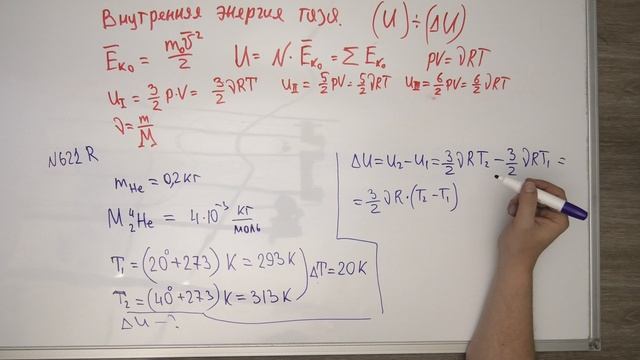 Внутренняя энергия газа. (U) ÷ (ΔU)
Ēк₀ = m₀v̄²/2 U = N · Ēк₀ = Σ Eк₀ pV = νRT
U_I = 3/2 p·V = 3/2 νRT U_II = 5/2 pV = 5/2 νRT U_III = 6/2 pV = 6/2 νRT
ν = m/M
N621 R
m He = 0,2 кг
M ⁴₂He = 4·10⁻³ кг/моль
T₁ = (20° + 273) K = 293 K
T₂ = (40° + 273) K = 313 K
ΔT = 20 K
ΔU – ?
ΔU = U₂ – U₁ = 3/2 νRT₂ – 3/2 νRT₁ =
= 3/2 νR · (T₂ – T₁)